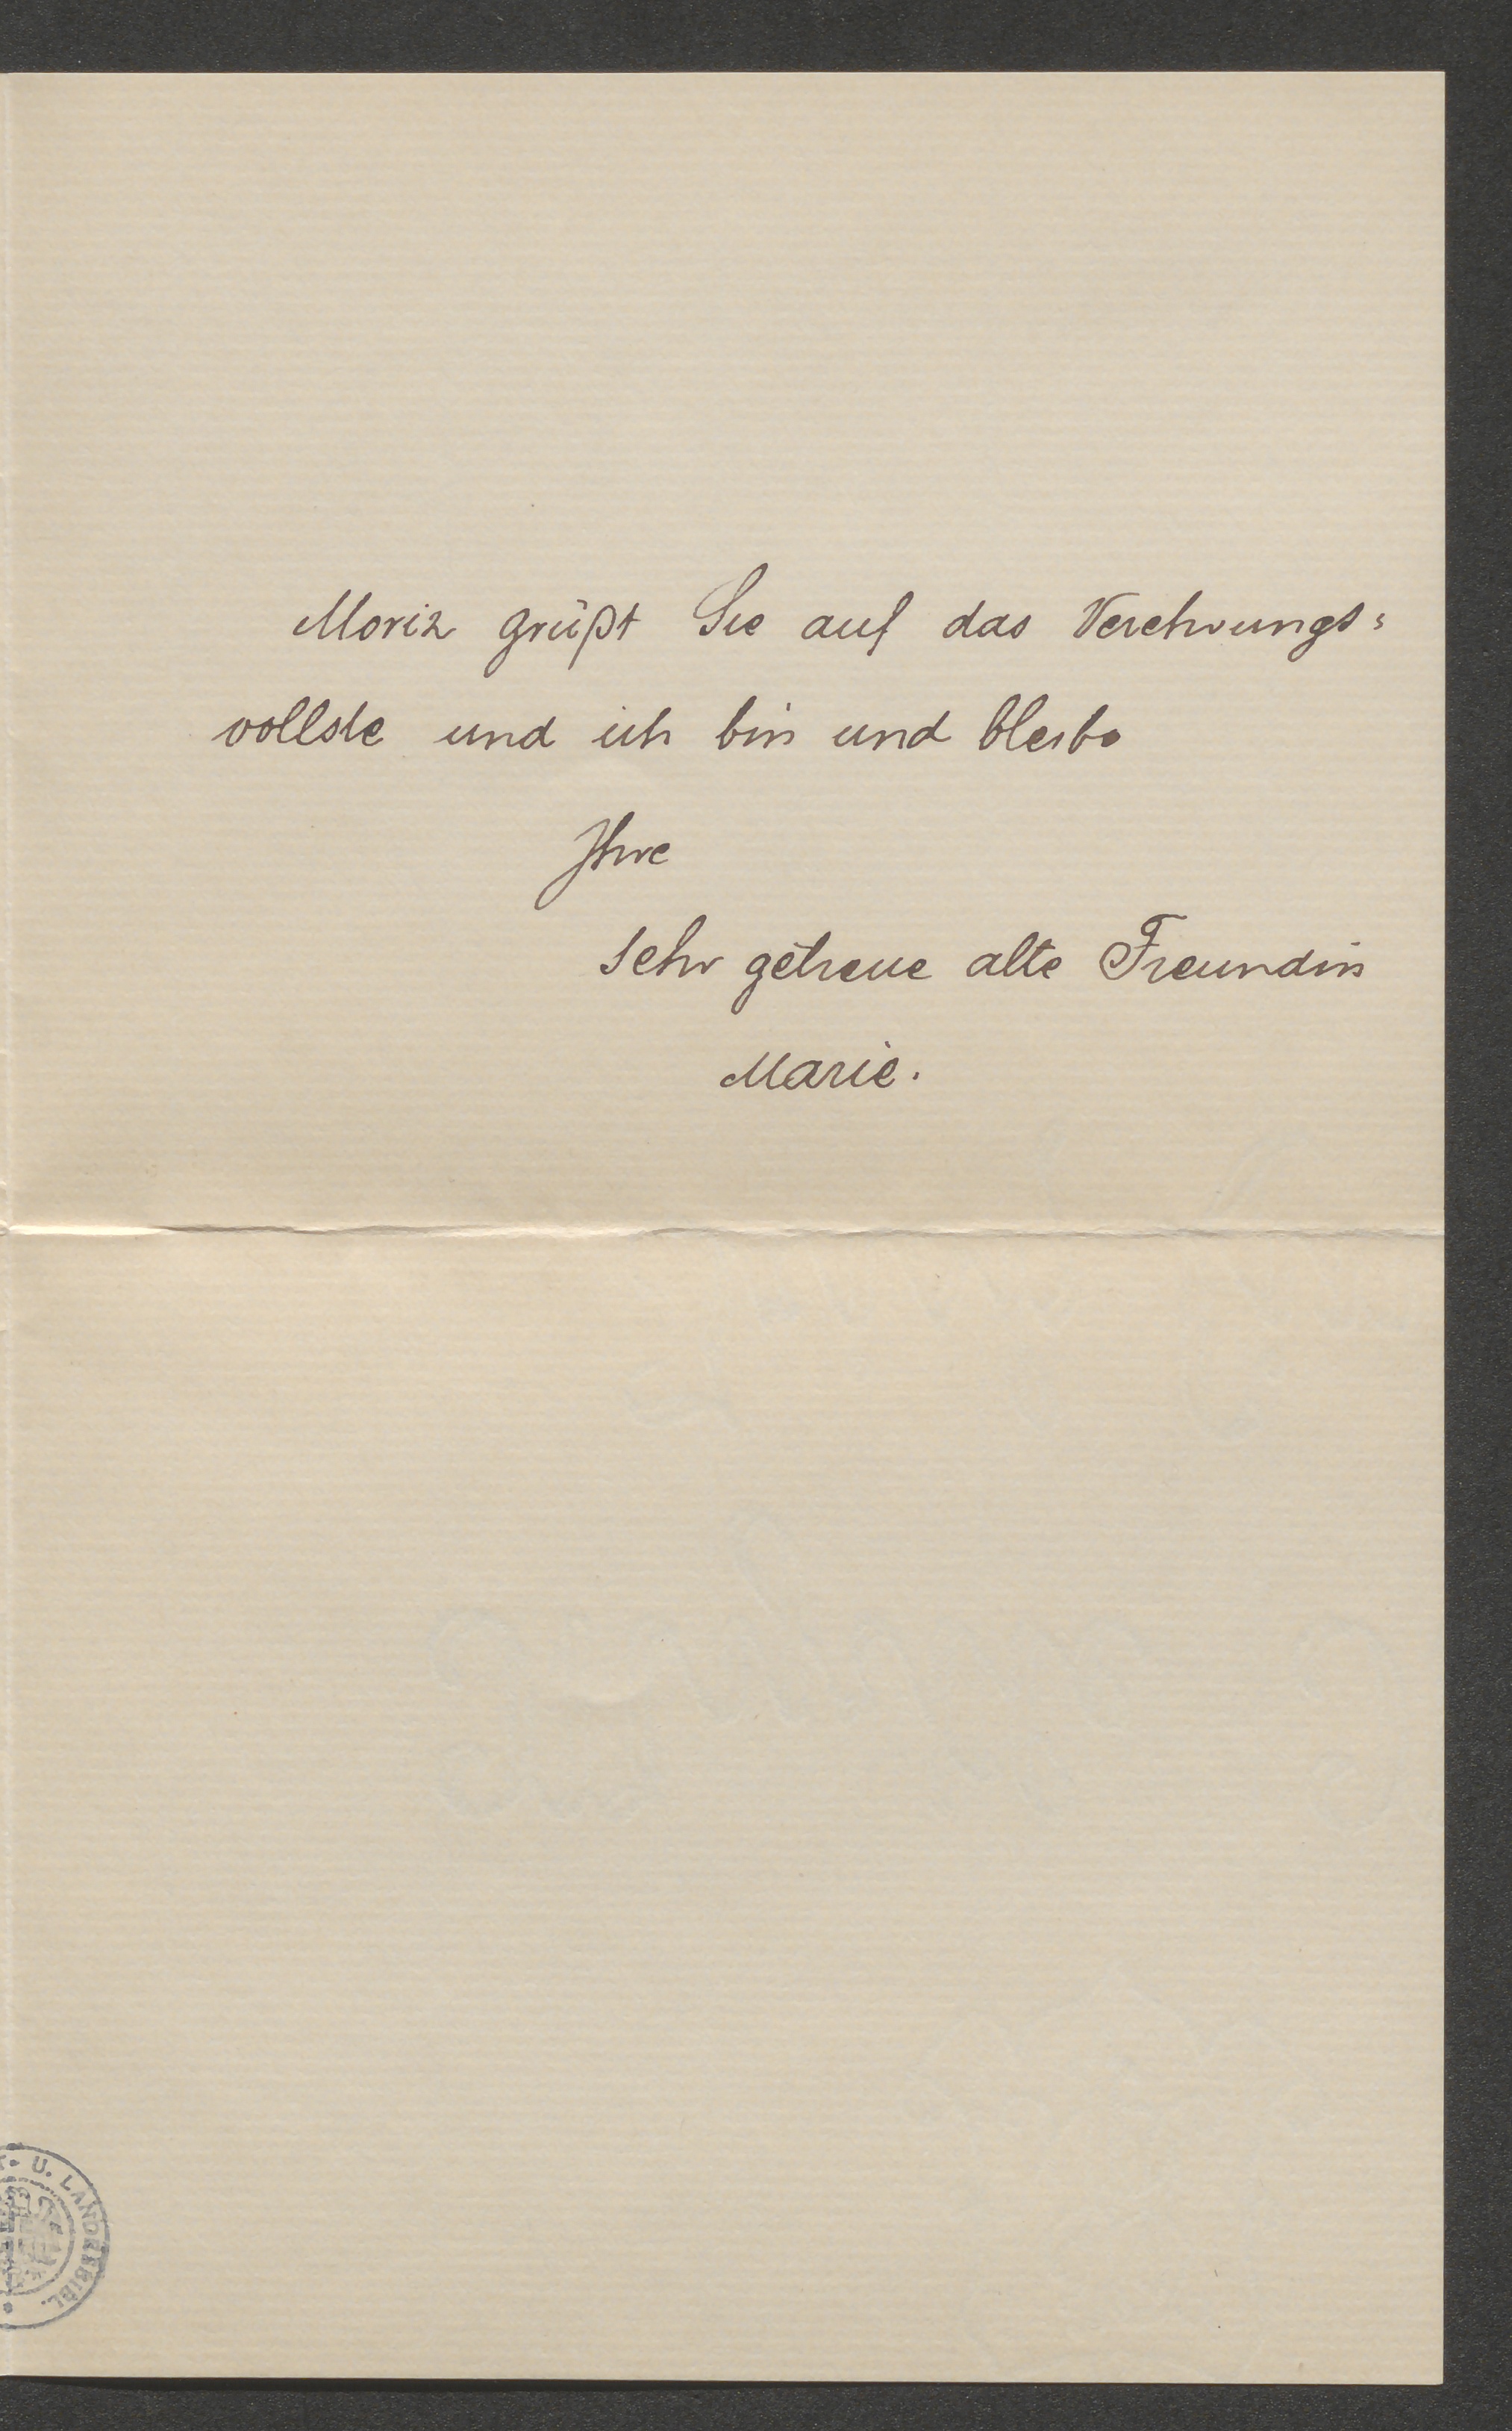 Moriz grüßt Sie auf das Verehrungs=
vollste und ich bin und bleibe
Ihre
sehr getreue alte Freundin
Marie.
U. LANDESBIBL.